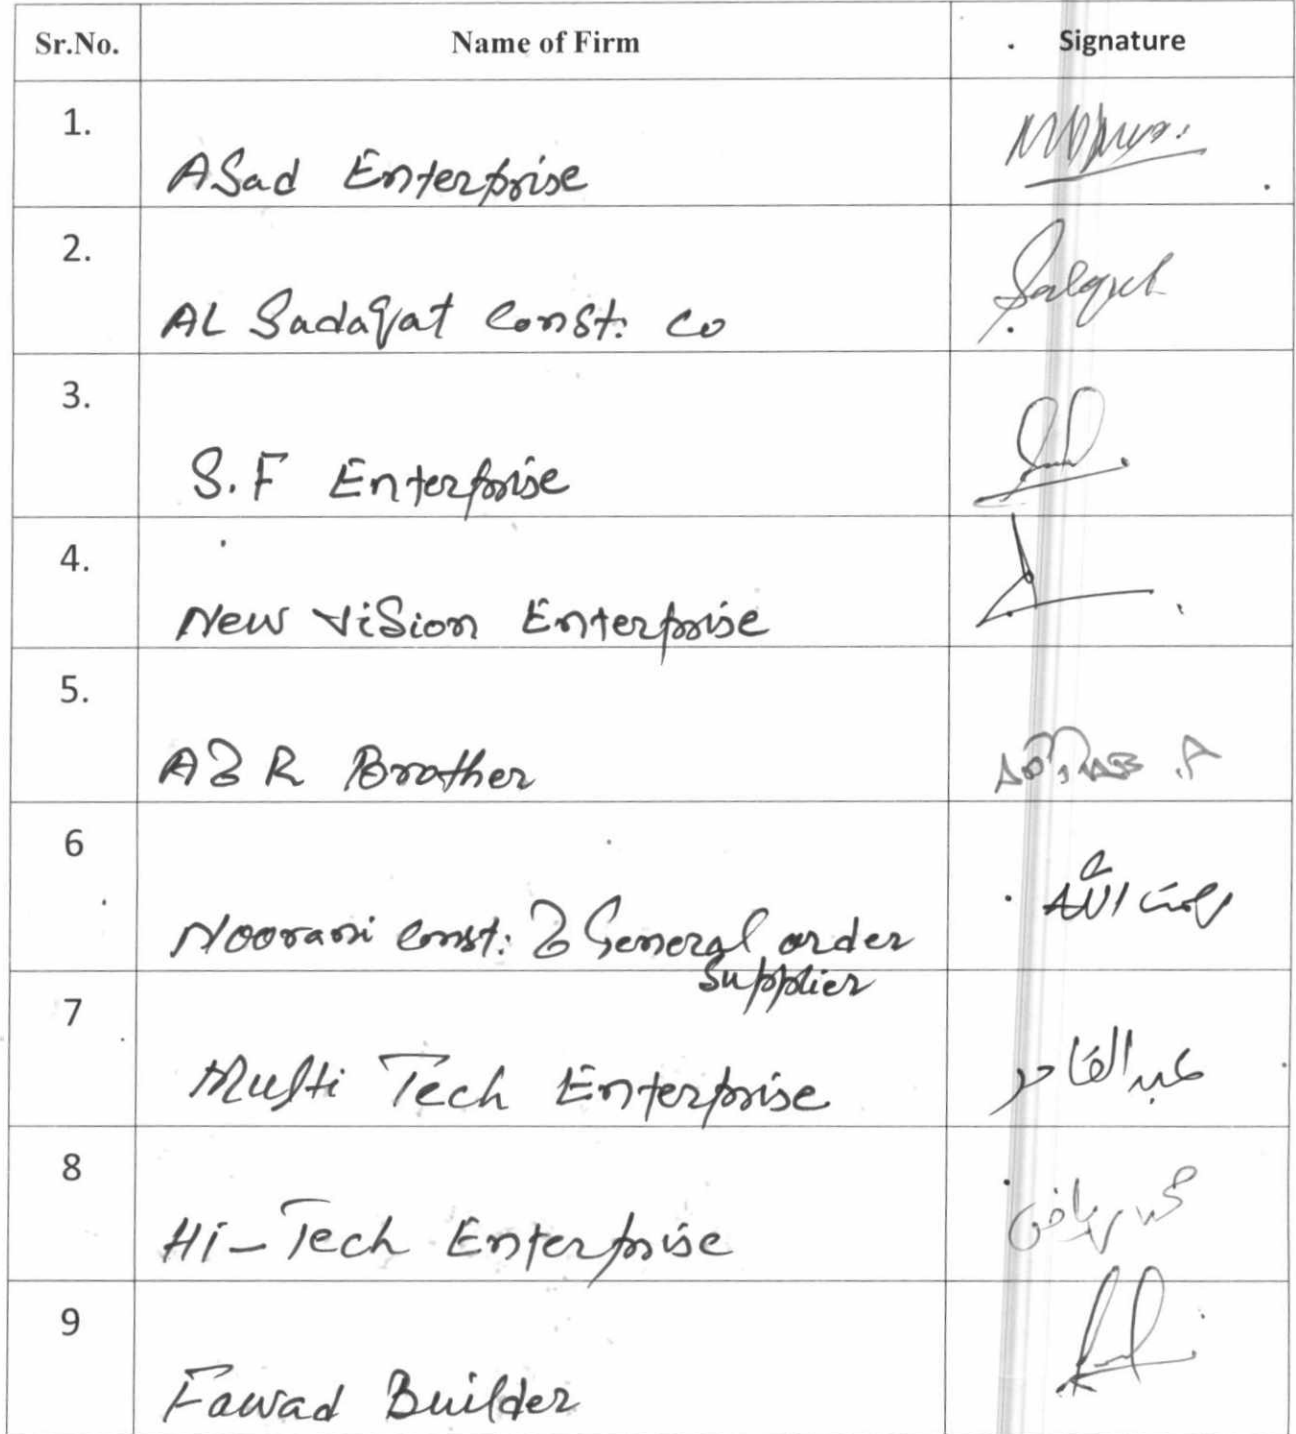 Sr.No. Name of Firm Signature
1.
ASad Enterprise
2.
AL Sadaqat Const: Co
3.
S.F Enterprise
4.
New ViSion Enterprise
5.
A & R Brother
6
Noorani Const: & General order
Supplier
رحمت اللہ
7
Multi Tech Enterprise
عبدالقادر
8
Hi-Tech Enterprise
محمد ریاض
9
Fawad Builder